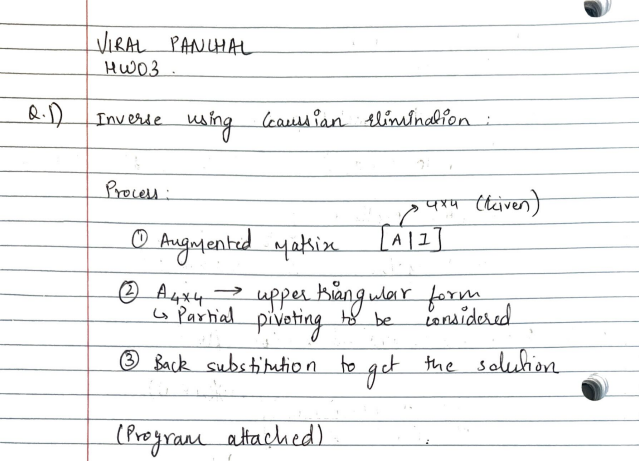 VIRAL PANCHAL
HW03.
Q.1) Inverse using Gaussian elimination :
Process :
4x4 (Given)
① Augmented matrix [A|I]
② A4x4 → upper triangular form
↳ Partial pivoting to be considered
③ Back substitution to get the solution
(Program attached)